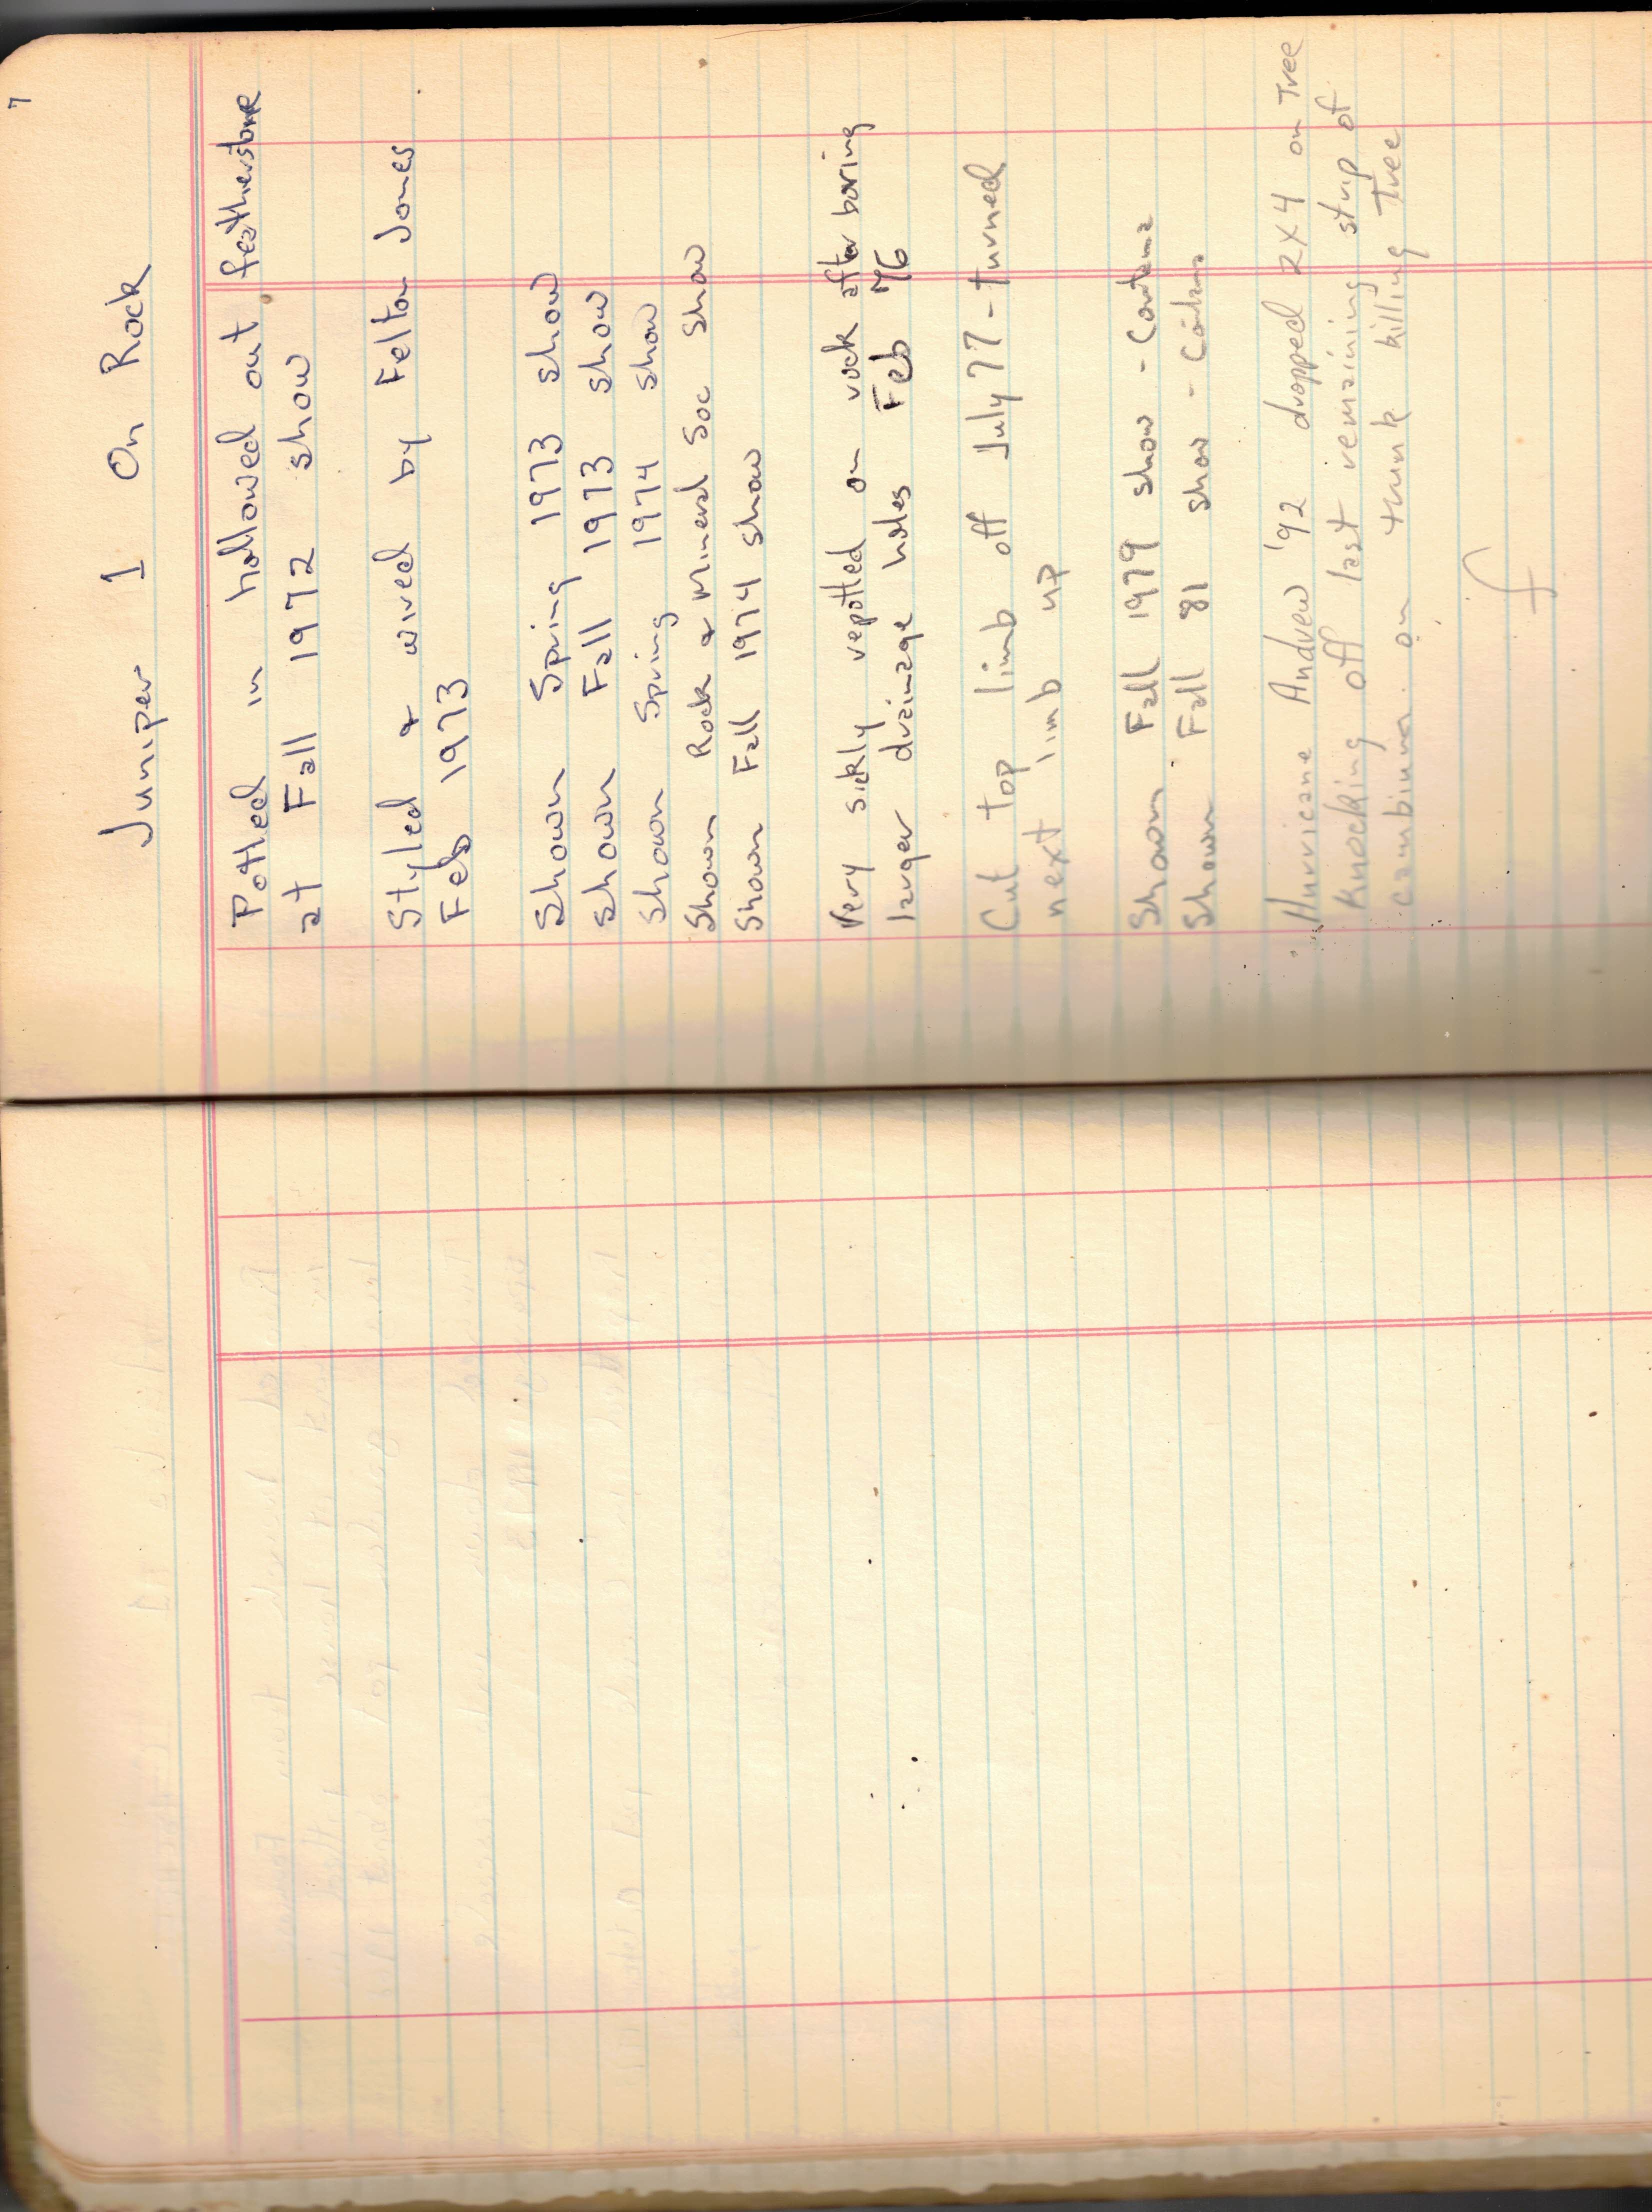 7
Juniper 1 On Rock
Potted in hollowed out featherstone
at Fall 1972 show
Styled & wired by Felton Jones
Feb 1973
Shown Spring 1973 show
shown Fall 1973 show
Shown Spring 1974 show
Shown Rock & Mineral Soc Show
Shown Fall 1974 show
Very sickly repotted on rock after boring
larger drainage holes Feb 76
Cut top limb off July 77 - turned
next limb up
Shown Fall 1979 show -
Shown Fall 81 show -
Hurricane Andrew '92 dropped 2X4 on Tree
Knocking off last remaining strip of
cambium on trunk killing Tree